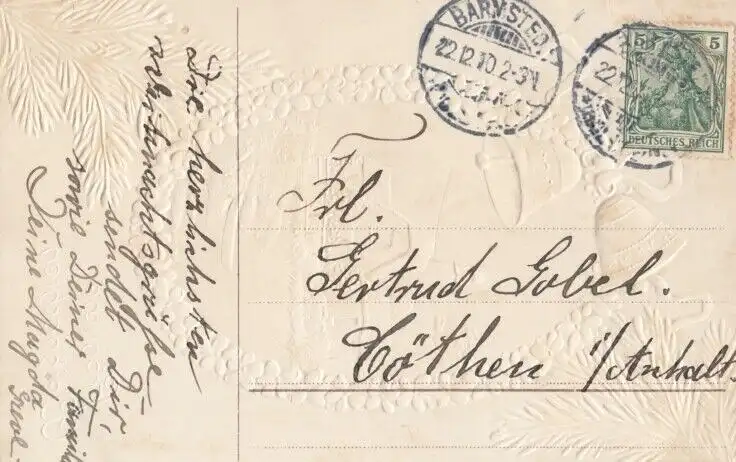 Die herzlichsten
Weihnachtsgrüße
sendet Dir,
sowie Deiner Familie
Deine Magda
BARMSTEDT
22.12.10.2-3N.
5 5
DEUTSCHES REICH
Frl.
Gertrud Gobel.
Cöthen i/Anhalt.